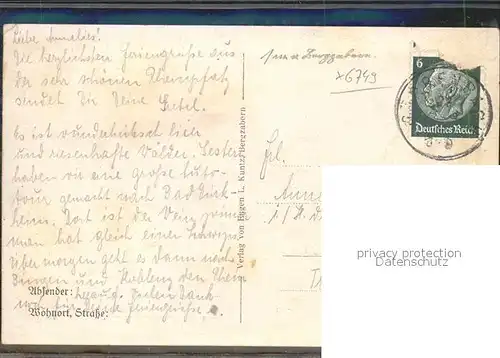 Liebe Annelies!
Die herzlichsten Feriengrüße aus
der sehr schönen Rheinpfalz
sendet Dir Deine Gretel.
Es ist wunderhübsch hier
und riesenhafte Wälder. Gestern
haben wir eine große Auto-
tour gemacht nach Bad Dürk-
heim. Dort ist der Wein prima
man hat gleich einen Schwips
Übermorgen geht es dann nach
Bingen und Koblenz den Rhein
Absender: Vielen Dank
für Deine Feriengrüße.
Wohnort, Straße:
Verlag von Eugen L. Kuntz, Bergzabern
Bergzabern
*6749
6
Deutsches Reich
Frl.
privacy protection
Datenschutz